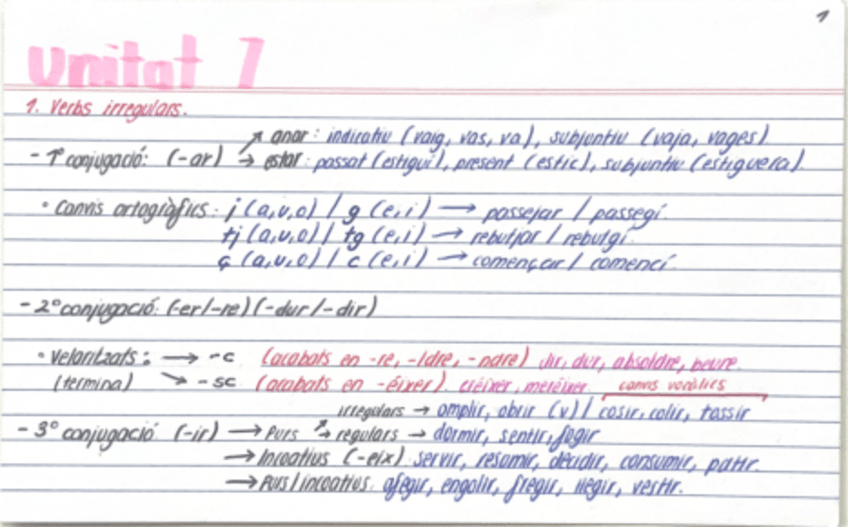 1
Unitat 1
1. Verbs irregulars.
↗ anar: indicatiu (vaig, vas, va), subjuntiu (vaja, vages)
- 1ª conjugació: (-ar) → estar: passat (estigui), present (estic), subjuntiu (estiguera).
• Canvis ortogràfics: j (a,u,o) / g (e,i) → passejar / passegi.
tj (a,u,o) / tg (e,i) → rebutjar / rebutgi.
ç (a,u,o) / c (e,i) → començar / comenci.
- 2º conjugació: (-er/-re) (-dur/-dir)
• Velaritzats: → -c (acabats en -re, -ldre, -ndre) dir, dur, absoldre, beure.
(termina) ↘ -sc (acabats en -éixer). créixer, meréixer. canvis vocàlics
irregulars → omplir, obrir (v) / cosir, colir, tossir
- 3º conjugació (-ir) → Purs ↗→ regulars → dormir, sentir, fogir
→ Incoatius (-eix) servir, resumir, decidir, consumir, patir.
→ Purs/incoatius: afegir, engolir, fregir, llegir, vestir.